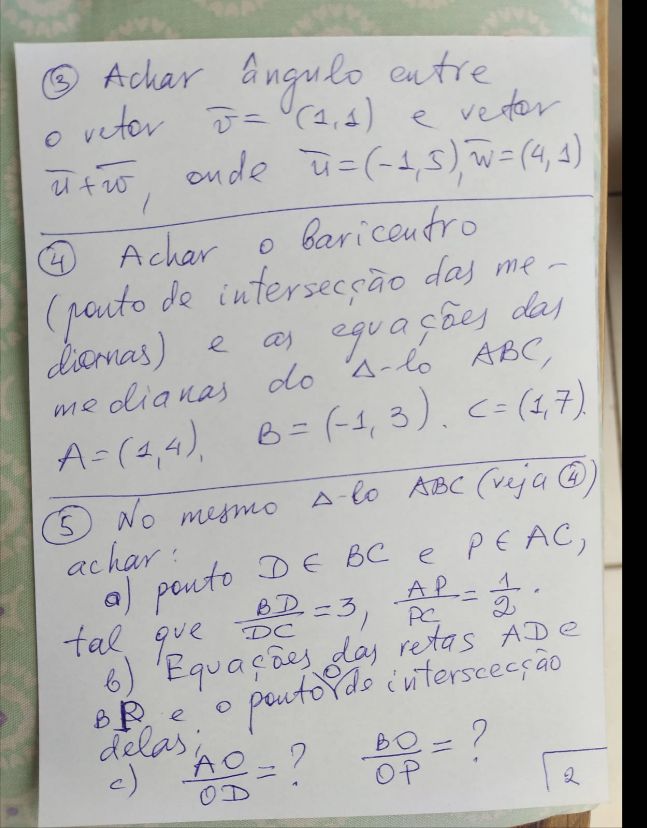 ③ Achar ângulo entre
o vetor v̅ = (1,1) e vetor
u̅+w̅, onde u̅=(-1,5), w̅=(4,1)
④ Achar o baricentro
(ponto de intersecção das me-
dianas) e as equações das
medianas do Δ-lo ABC,
A=(1,4), B=(-1,3). C=(1,7).
⑤ No mesmo Δ-lo ABC (veja ④)
achar:
a) ponto D ∈ BC e P ∈ AC,
tal que BD/DC = 3, AP/PC = 1/2.
b) Equações das retas AD e
BP e o ponto O de intersecção
delas;
c) AO/OD = ? BO/OP = ?
2